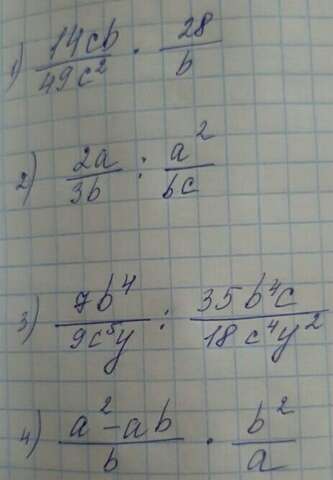 1) 14cb/49c² · 28/b
2) 2a/3b : a²/bc
3) 7b⁴/9c⁵y : 35b⁴c/18c⁴y²
4) a²-ab/b · b²/a